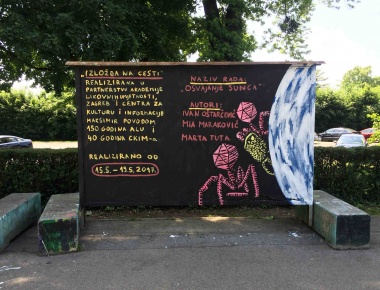 „IZLOŽBA NA CESTI"
REALIZIRANA U
PARTNERSTVU AKADEMIJE
LIKOVNIH UMJETNOSTI,
ZAGREB I CENTRA ZA
KULTURU I INFORMACIJE
MAKSIMIR POVODOM
150 GODINA ALU I
40 GODINA CKIM-a.
REALIZIRANO OD
15.5. – 19.5. 2017.
NAZIV RADA:
„OSVAJANJE SUNCA"
AUTORI:
IVAN OŠTARČEVIĆ
MIA MARAKOVIĆ
MARTA TUTA